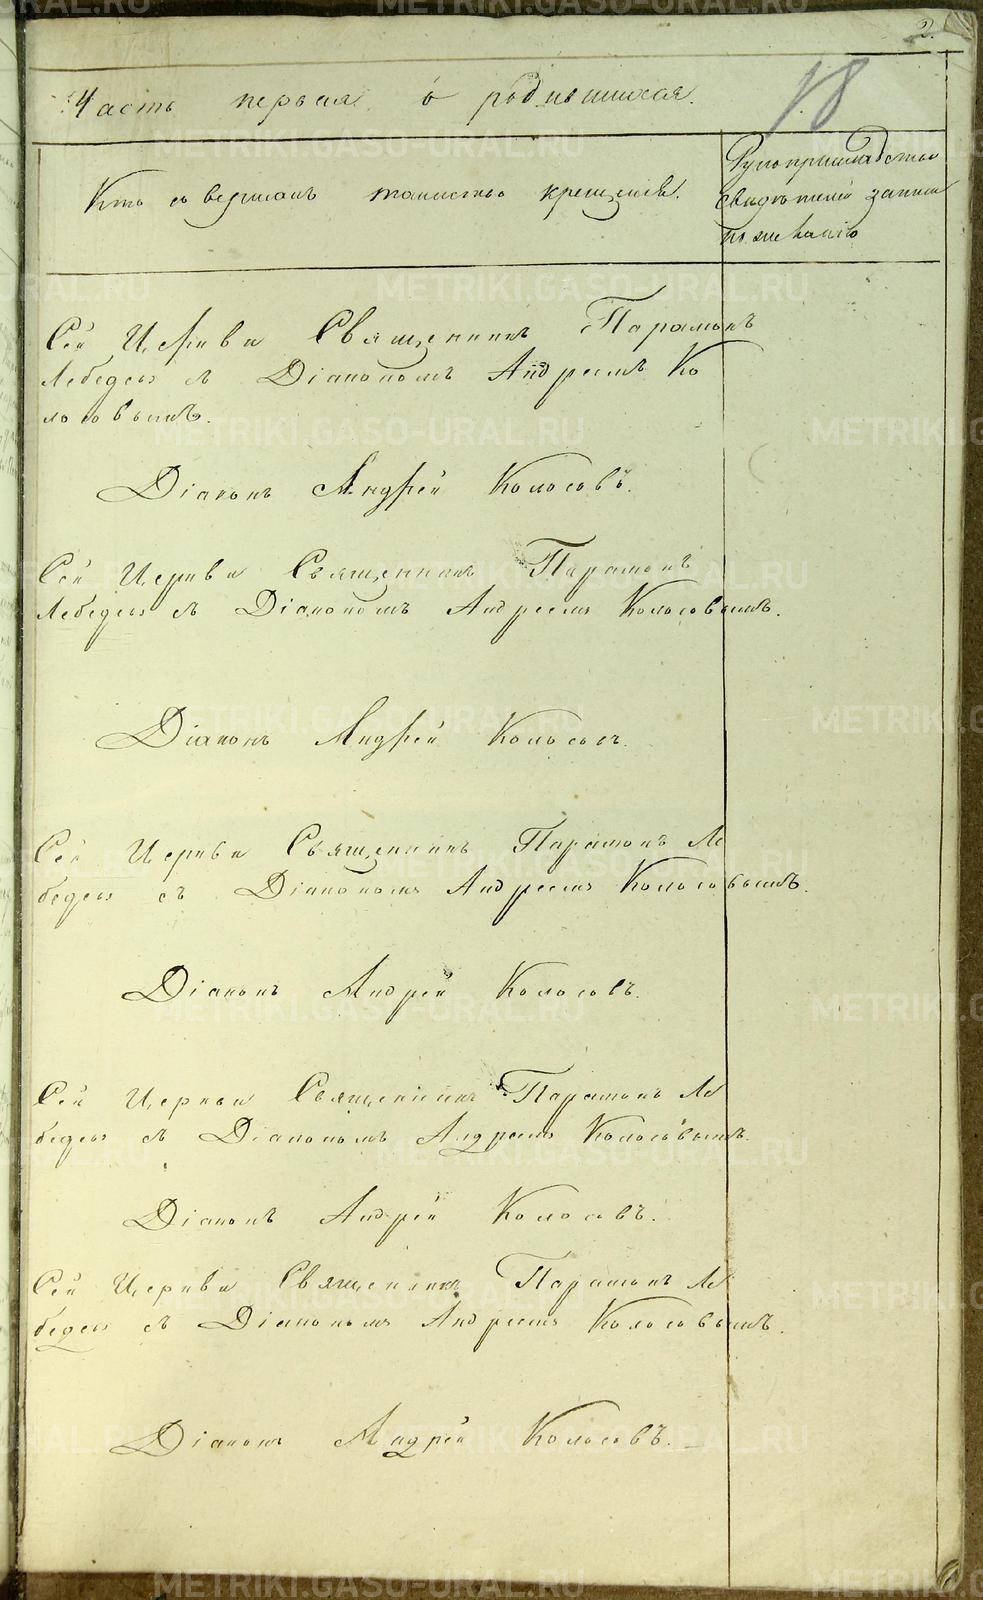 2.
18
Часть первая о родившихся.
Кто совершалъ таинство крещенія.
Рукоприкладство
свидѣтелей записи
по желанію
Сей Церкви Священникъ Парамонъ
Лебедевъ съ Діакономъ Андреемъ Ко
лосовымъ.
Діаконъ Андрей Колосовъ.
Сей Церкви Священникъ Парамонъ
Лебедевъ съ Діакономъ Андреемъ Колосовымъ.
Діаконъ Андрей Колосовъ.
Сей Церкви Священникъ Парамонъ Ле
бедевъ съ Діакономъ Андреемъ Колосовымъ.
Діаконъ Андрей Колосовъ.
Сей Церкви Священникъ Парамонъ Ле
бедевъ съ Діакономъ Андреемъ Колосовымъ.
Діаконъ Андрей Колосовъ.
Сей Церкви Священникъ Парамонъ Ле
бедевъ съ Діакономъ Андреемъ Колосовымъ.
Діаконъ Андрей Колосовъ.
METRIKI.GASO-URAL.RU